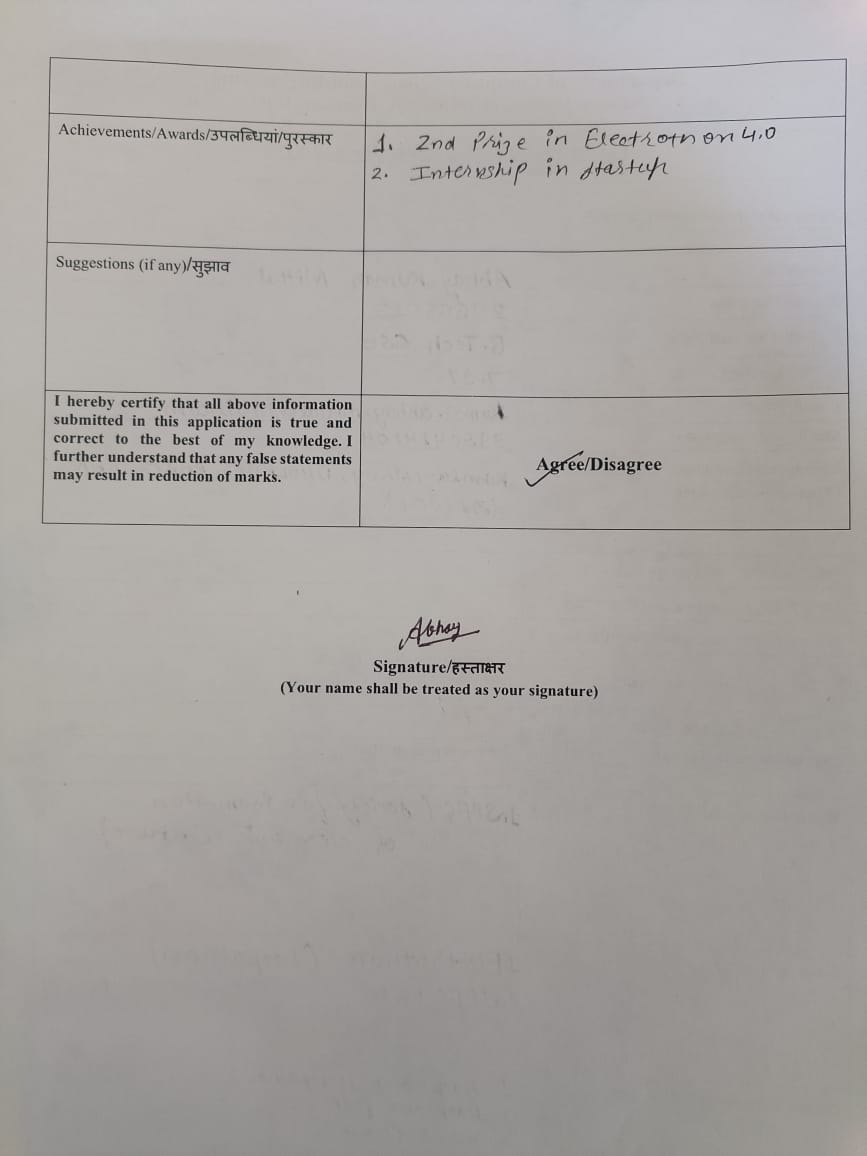 Achievements/Awards/उपलब्धियां/पुरस्कार
1. 2nd Prize in Electrothon 4.0
2. Internship in startup
Suggestions (if any)/सुझाव
I hereby certify that all above information
submitted in this application is true and
correct to the best of my knowledge. I
further understand that any false statements
may result in reduction of marks.
Agree/Disagree
Abhay
Signature/हस्ताक्षर
(Your name shall be treated as your signature)